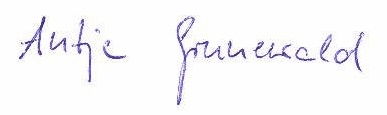 Antje Grunewald